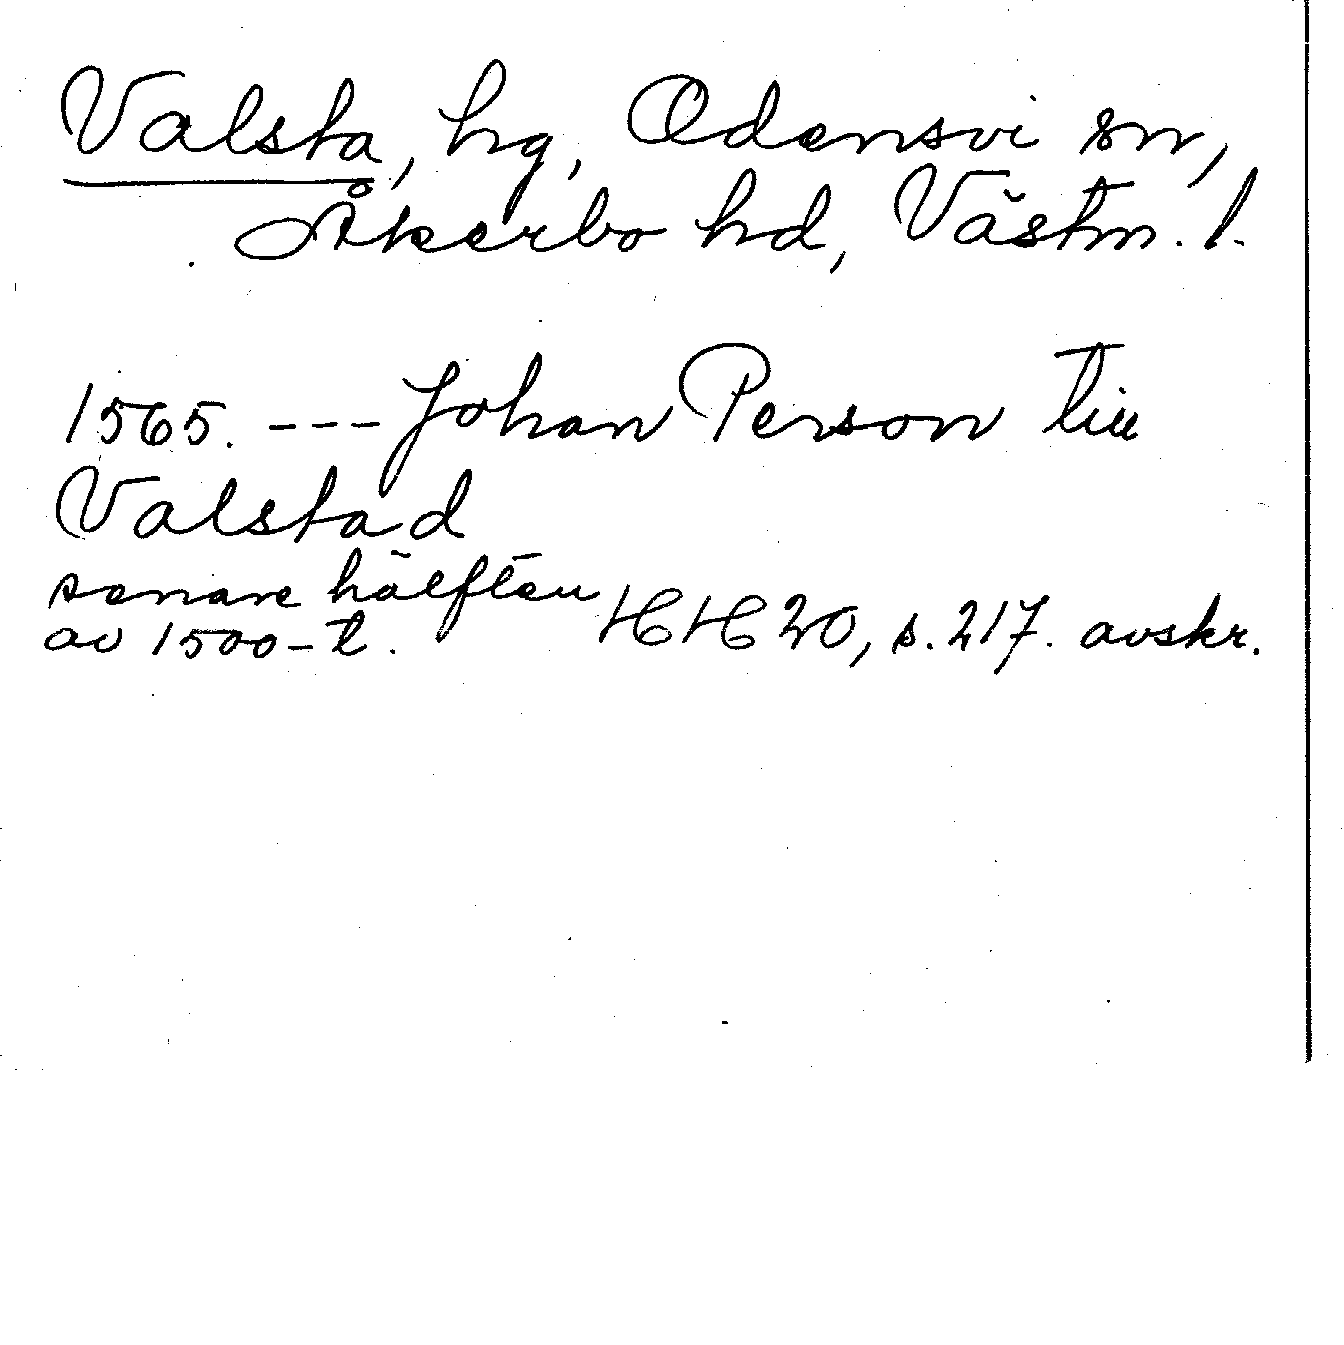 Valsta, hg, Odensvi sn,
Åkerbo hd, Västm. l.
1565. --- Johan Person till
Valstad
senare hälften
av 1500-t. HH 20, s. 217. avskr.